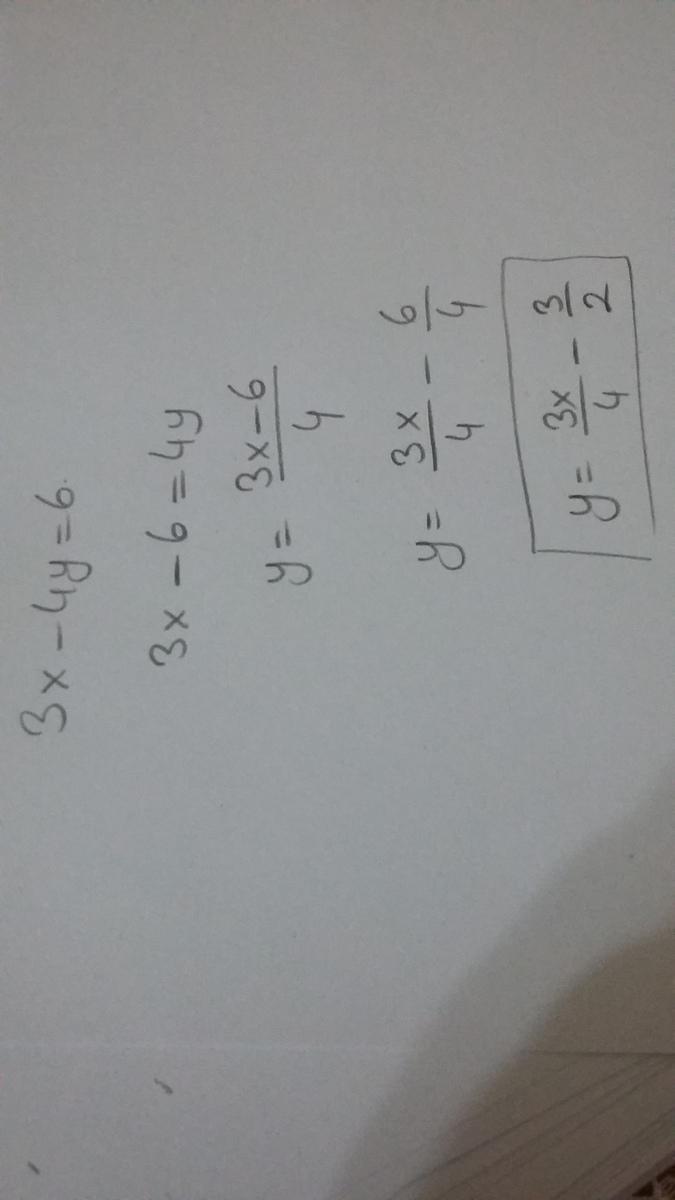 3x - 4y = 6
3x - 6 = 4y
y = \frac{3x-6}{4}
y = \frac{3x}{4} - \frac{6}{4}
y = \frac{3x}{4} - \frac{3}{2}